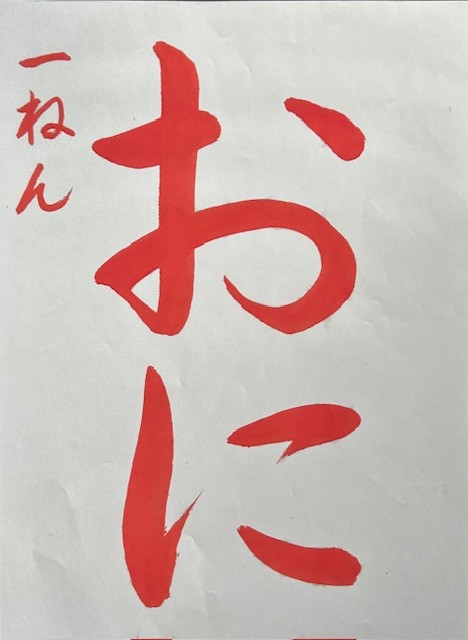 おに
一ねん